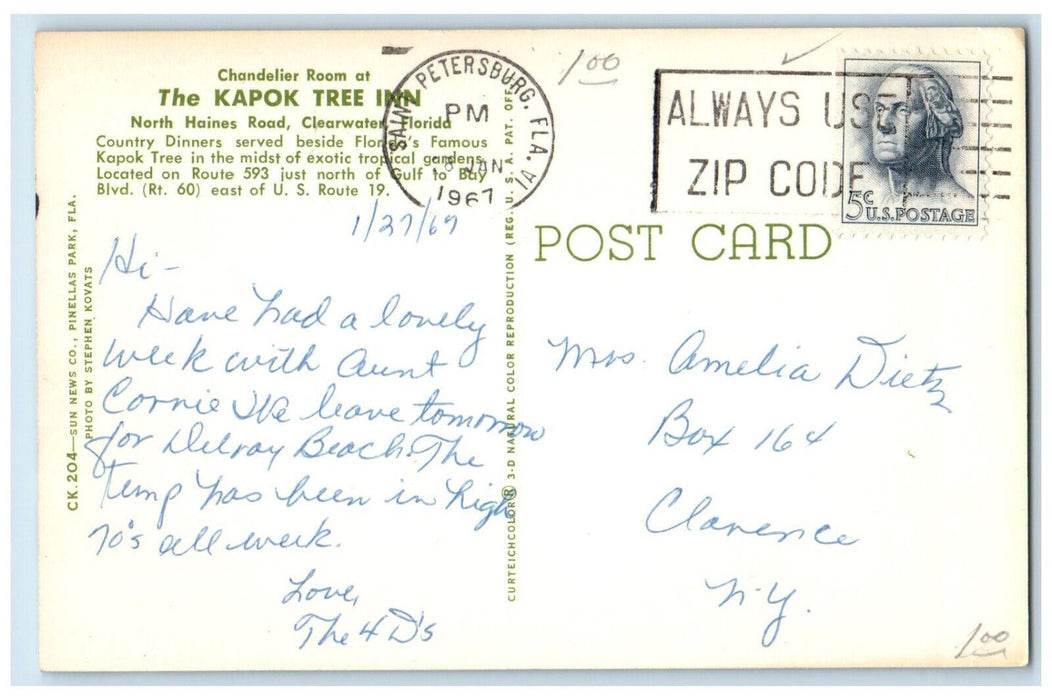 Chandelier Room at
The KAPOK TREE INN
North Haines Road, Clearwater, Florida
Country Dinners served beside Florida's Famous
Kapok Tree in the midst of exotic tropical gardens.
Located on Route 593 just north of Gulf to Bay
Blvd. (Rt. 60) east of U. S. Route 19.
CK.204—SUN NEWS CO., PINELLAS PARK, FLA.
PHOTO BY STEPHEN KOVATS
1/27/67
Hi-
Have had a lovely
week with Aunt
Connie. We leave tomorrow
for Delray Beach. The
temp has been in high
70's all week.
Love,
The 4 D's
CURTEICHCOLOR® 3-D NATURAL COLOR REPRODUCTION (REG. U. S. A. PAT. OFF.)
SAINT PETERSBURG, FLA.
PM
JAN
1967
1.00
ALWAYS USE
ZIP CODE
5c U.S. POSTAGE
POST CARD
Mrs. Amelia Dietz
Box 164
Clarence
N.Y.
1.00